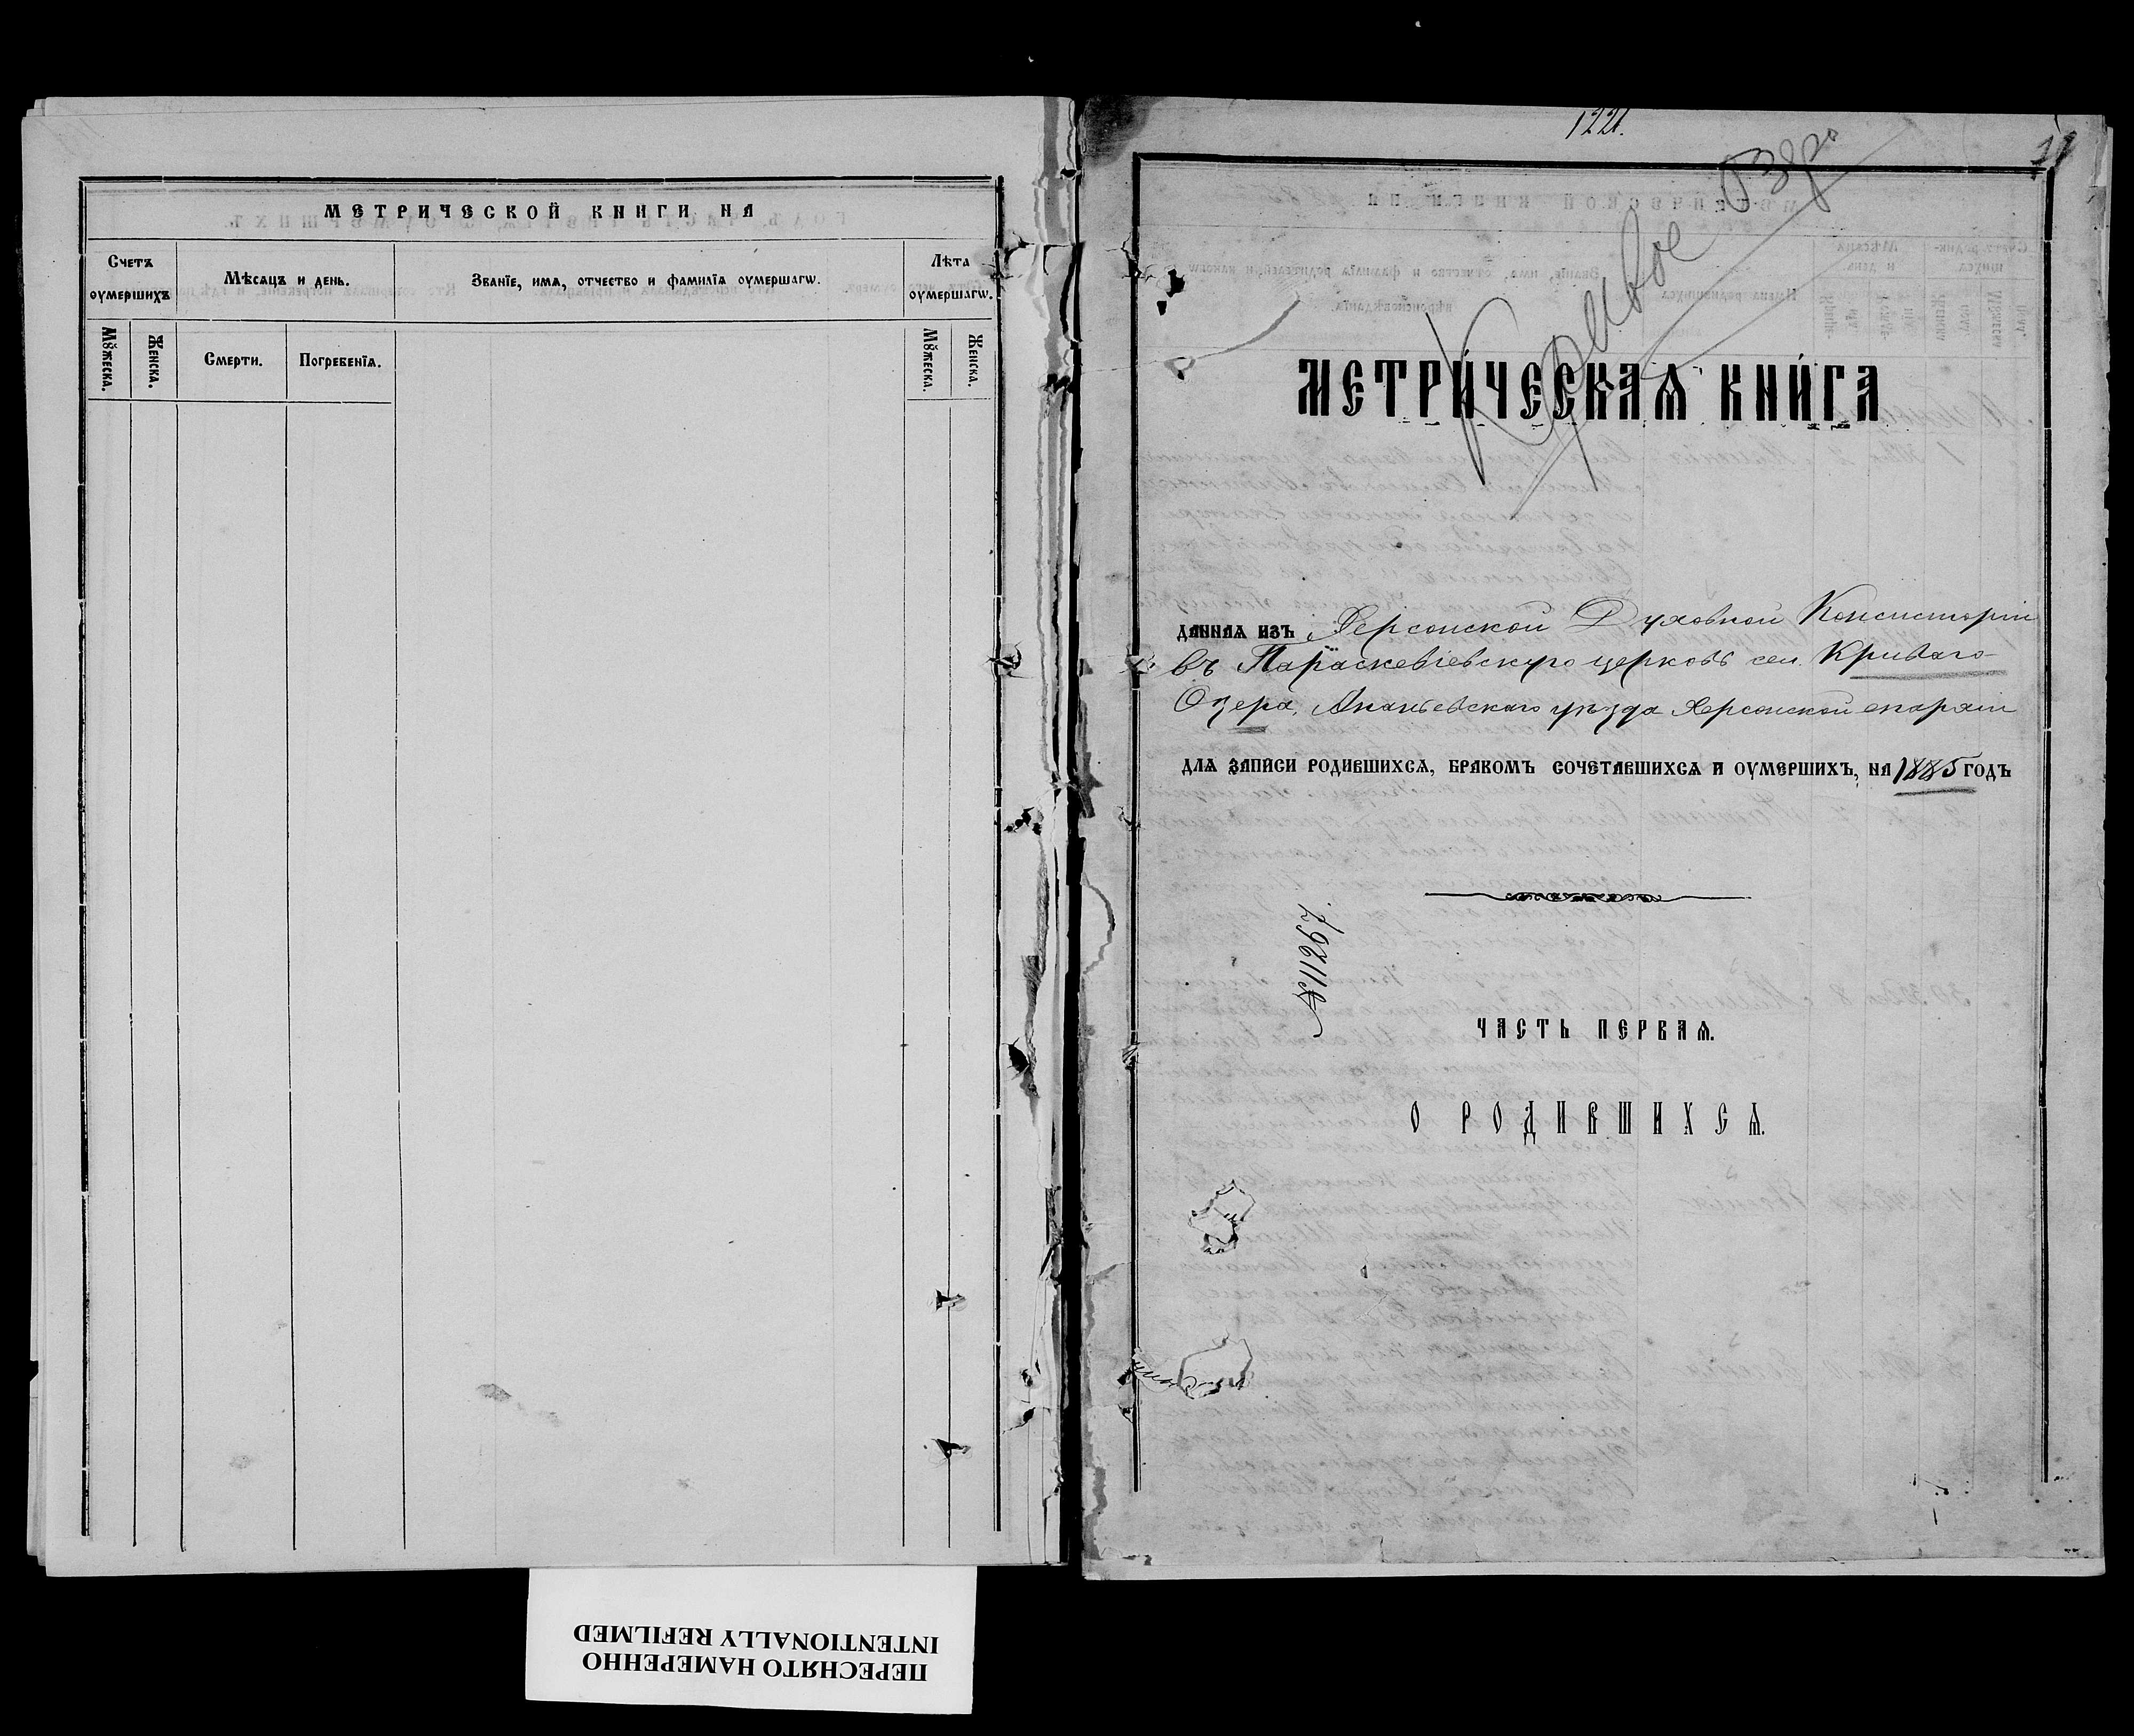 МЕТРИЧЕСКОЙ КНИГИ НА
Счетъ оумершихъ
Мѣсяцъ и день.
Званїе, имѧ, отчество и фамилїѧ оумершагѡ.
Лѣта оумершагѡ.
Мꙋжеска.
Женска.
Смерти.
Погребенїѧ.
Мꙋжеска.
Женска.
122.
Кривое Озеро
МЕТРИ́ЧЕСКАѦ КНИ́ГА
даннаѧ изъ Херсонской Духовной Консисторіи
въ Параскевіевскую церковь сел. Криваго
Озера, Ананьевскаго уѣзда Херсонской епархіи
длѧ записи родившихсѧ, бракомъ сочетавшихсѧ и оумершихъ, на 1885 годъ
ЧАСТЬ ПЕРВАѦ.
О РОДИВШИХСѦ.
ПЕРЕСНЯТО НАМЕРЕННО
INTENTIONALLY REFILMED